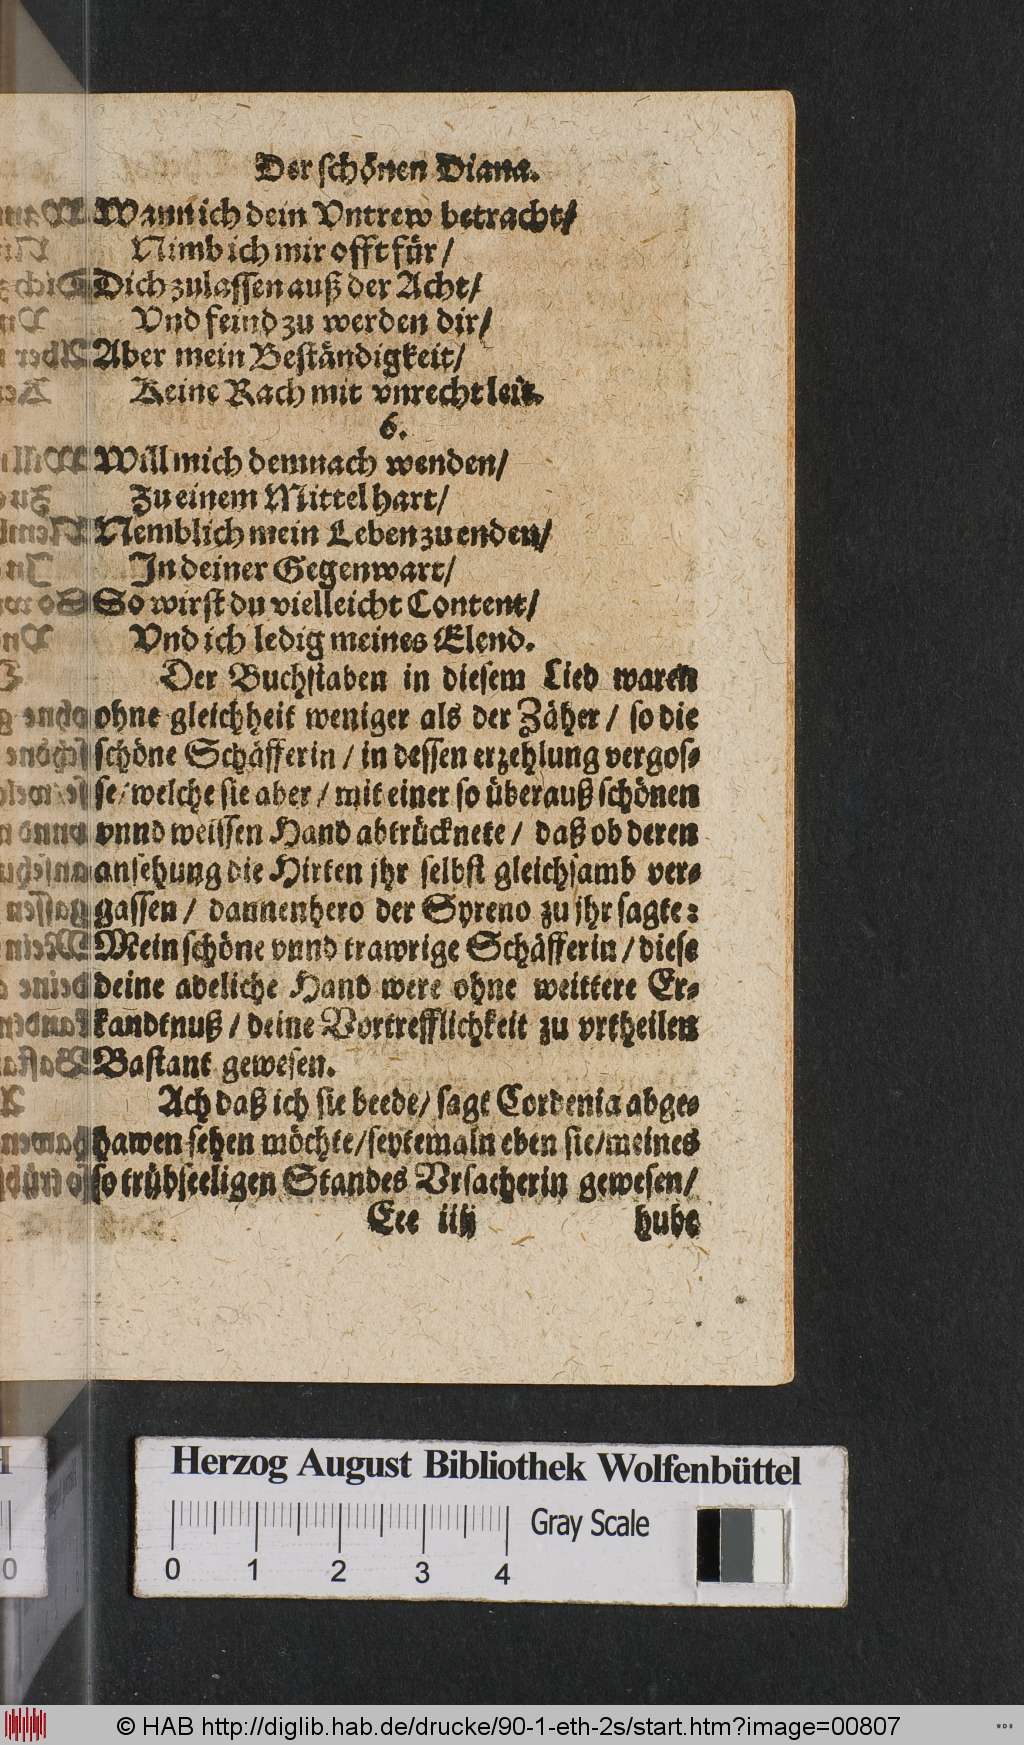 Der schönen Diana.
Wann ich dein Vntrew betracht/
Nimb ich mir offt für/
Dich zulassen auß der Acht/
Vnd feind zu werden dir/
Aber mein Beständigkeit/
Keine Rach mit vnrecht leit.
6.
Will mich demnach wenden/
Zu einem Mittel hart/
Nemblich mein Leben zu enden/
In deiner Gegenwart/
So wirst du vielleicht Content/
Vnd ich ledig meines Elend.
Der Buchstaben in diesem Lied waren
ohne gleichheit weniger als der Zäher / so die
schöne Schäfferin / in dessen erzehlung vergos-
se/welche sie aber / mit einer so überauß schönen
vnnd weissen Hand abtrücknete / daß ob deren
ansehung die Hirten jhr selbst gleichsamb ver-
gassen / dannenhero der Syreno zu jhr sagte:
Mein schöne vnnd trawrige Schäfferin / diese
deine adeliche Hand were ohne weittere Er-
kandtnuß / deine Vortrefflichkeit zu vrtheilen
Bastant gewesen.
Ach daß ich sie beede/ sagt Cordenia abge-
hawen sehen möchte/seytemaln eben sie/meines
so trübseeligen Standes Vrsacherin gewesen/
Eee iiij hube
Herzog August Bibliothek Wolfenbüttel
Gray Scale
0 1 2 3 4
© HAB http://diglib.hab.de/drucke/90-1-eth-2s/start.htm?image=00807